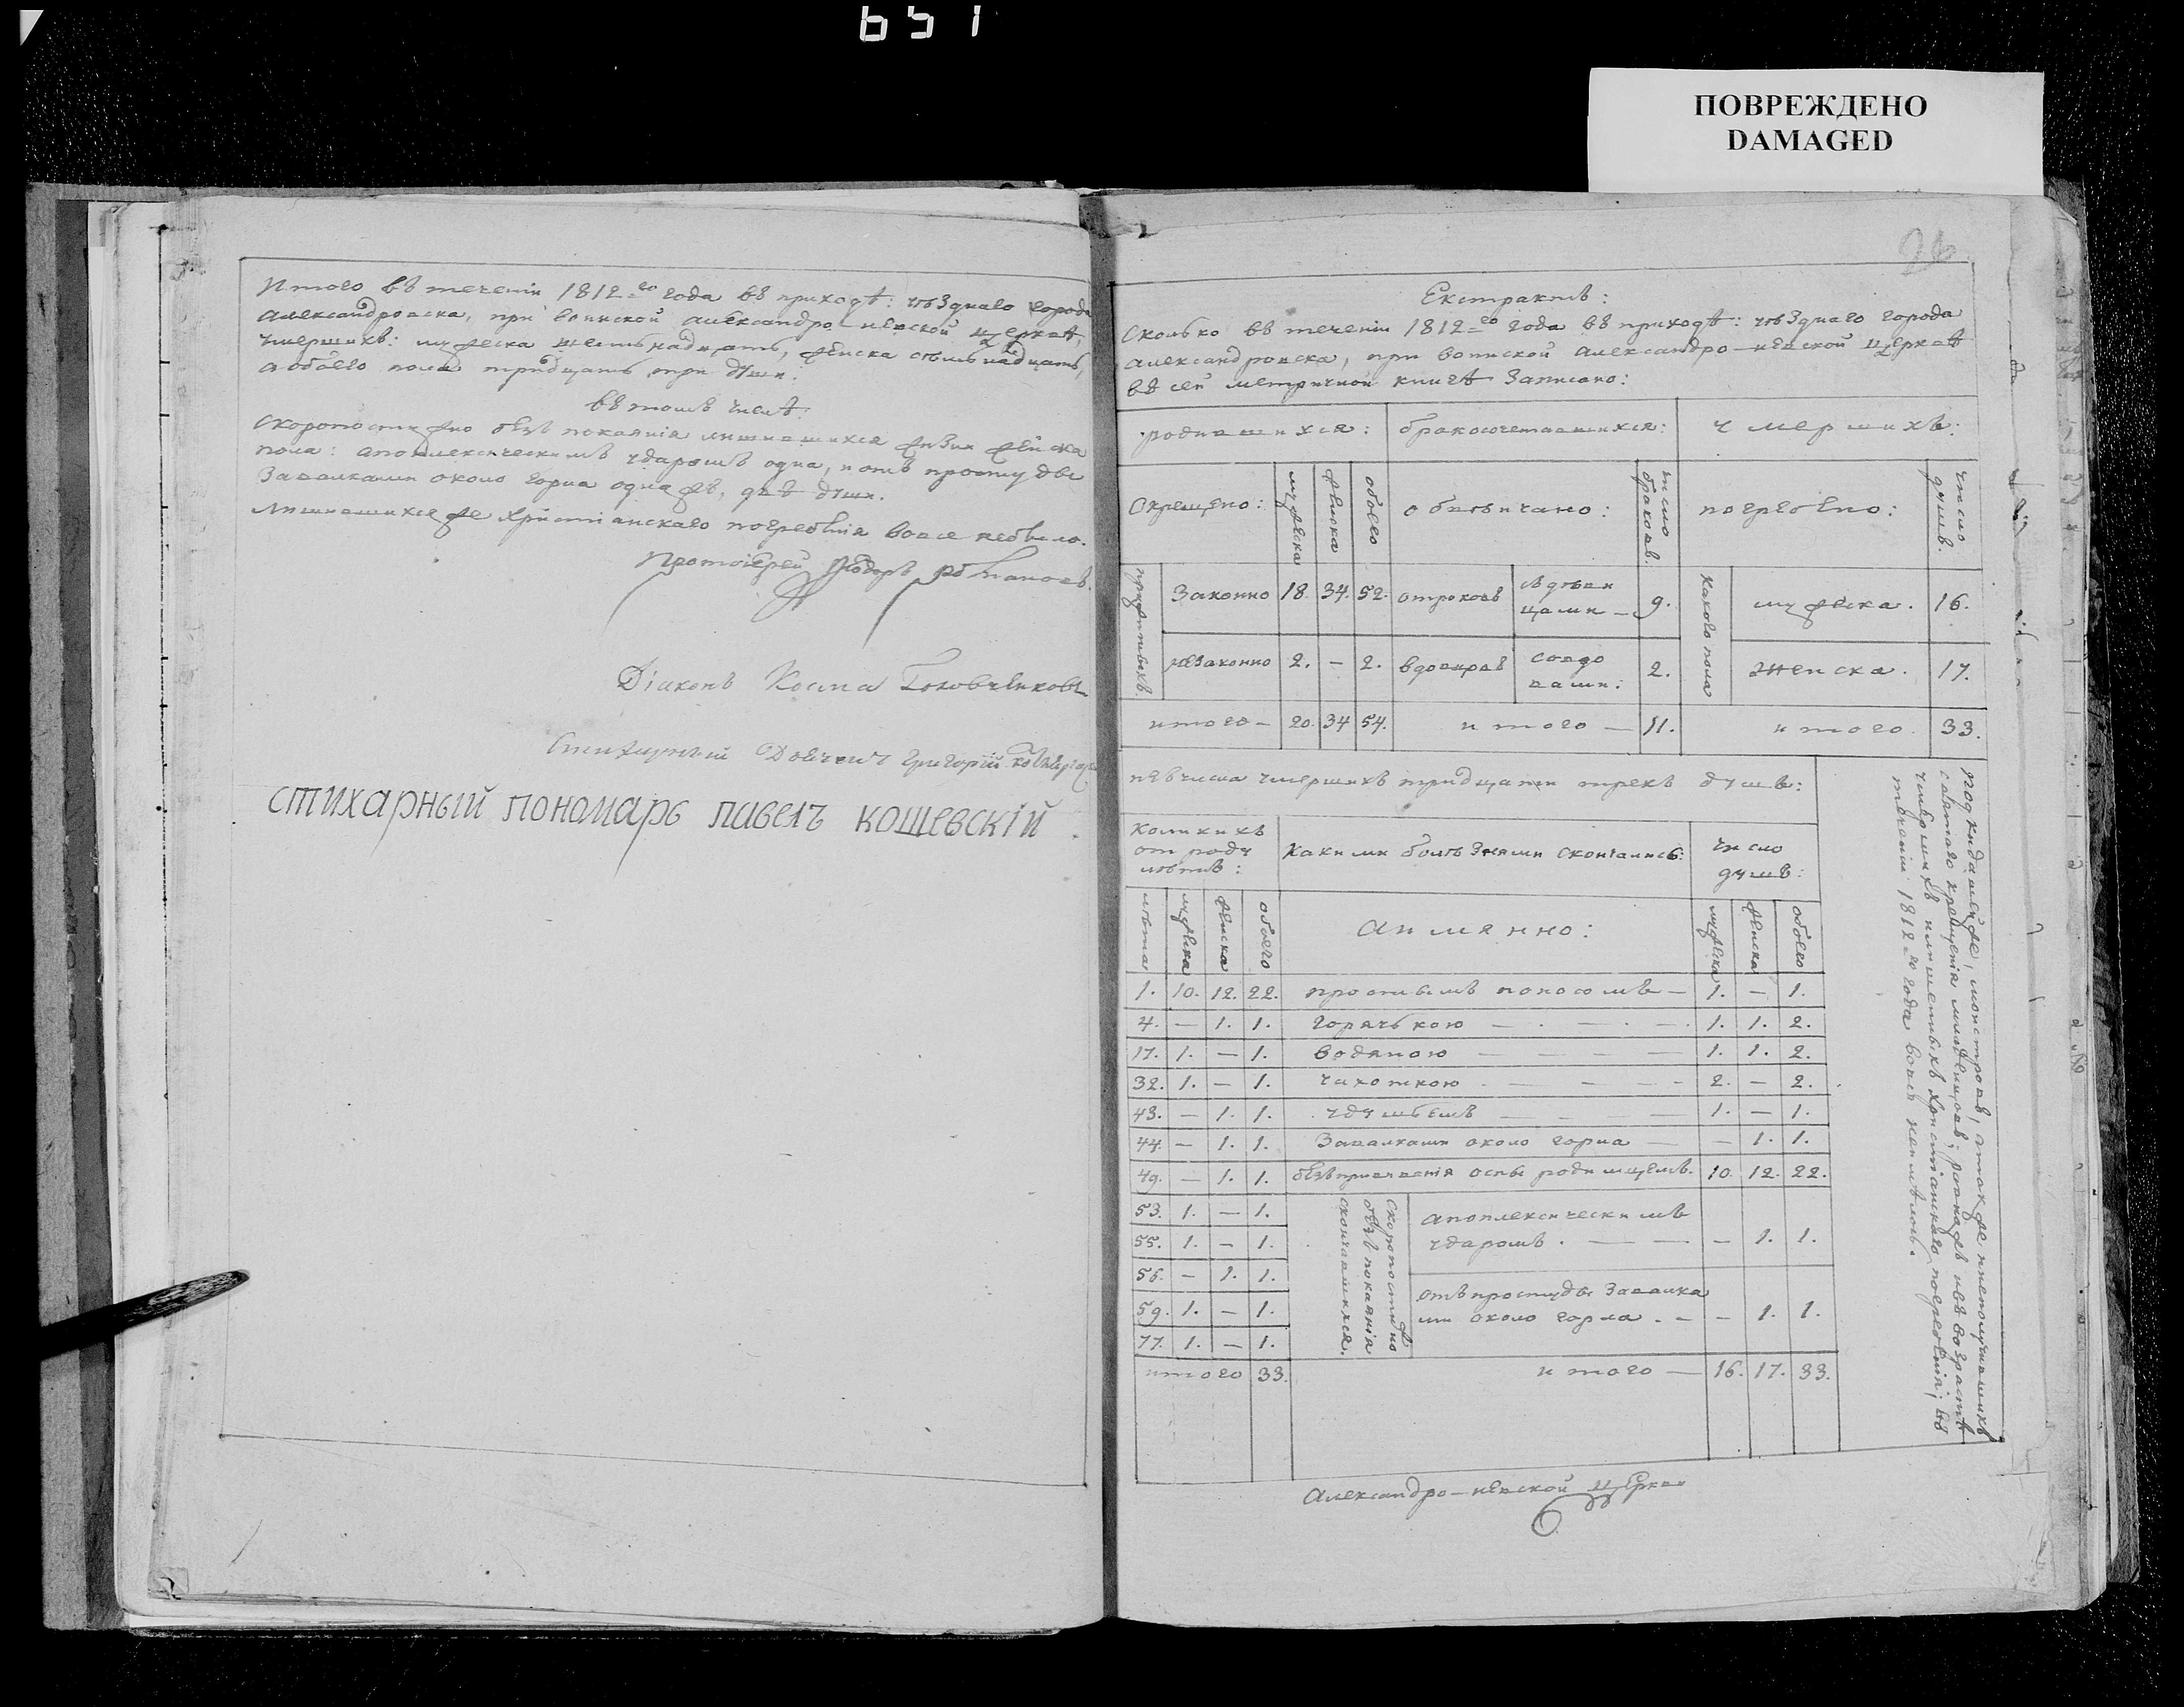 651
ПОВРЕЖДЕНО
DAMAGED
Итого въ теченіи 1812=го года въ приходѣ: уѣзднаго города
александровска, при воинской александро-невской церквѣ,
умершихъ: мужеска шестьнадцать, женска семьнадцать,
а обоего пола тридцать три души:
въ томъ числѣ:
Скоропостижно безъ покаянія лишившихся жизни женска
пола: апоплексическимъ ударомъ одна, и отъ простуды
Завалками около горла одна жъ, двѣ души.
Лишившихся же христіанскаго погребенія вовсе небыло.
Протоіерей Феодоръ
Діаконъ Косма
Стихарный Дьячекъ Григорій
стихарный пономарь павелъ кошевскій
26
Екстрактъ:
Сколько въ теченіи 1812=го года въ приходѣ: уѣзднаго города
александровска, при воинской александро-невской церквѣ
въ сей метричной книгѣ Записано:
родившихся: бракосочетавшихся: умершихъ:
Окрещено: мужеска женска обоего обвѣнчано: число браковъ. погребено: число душъ.
прижитыхъ Законно 18. 34. 52. отроковъ съ дѣви цами – 9. какого пола мужеска. 16.
незаконно 2. – 2. вдовцовъ со вдо вами: 2. женска. 17.
итого – 20. 34 54. итого – 11. итого. 33.
изъ числа умершихъ тридцати трехъ душъ:
коликихъ от роду лѣтъ: какими болѣзнями скончались: число душъ:
лѣта мужеска женска обоего а имянно: мужеска женска обоего
1. 10. 12. 22. простымъ поносомъ – 1. – 1.
4. – 1. 1. горячькою – 1. 1. 2.
17. 1. – 1. водяною – 1. 1. 2.
32. 1. – 1. чахоткою – 2. – 2.
43. – 1. 1. удушьемъ – 1. – 1.
44. – 1. 1. Завалками около горла – – 1. 1.
49. – 1. 1. безъ привитія оспы родимцемъ. 10. 12. 22.
53. 1. – 1. Скоропостижно безъ покаянія скончавшихся. апоплексическимъ
55. 1. – 1. ударомъ. – – 1. 1.
56. – 1. 1.
59. 1. – 1. отъ простуды Завалка ми около горла. – – 1. 1.
77. 1. – 1.
итого 33. итого – 16. 17. 33.
подкидышей же, монстровъ, а также и неполучившихъ
святаго крещенія младенцовъ; равно жъ изъ возрастѣ
умершихъ и лишенныхъ христіанскаго погребенія, въ
теченіи 1812=го года вовсе неимѣлось.
Александро-невской церкви